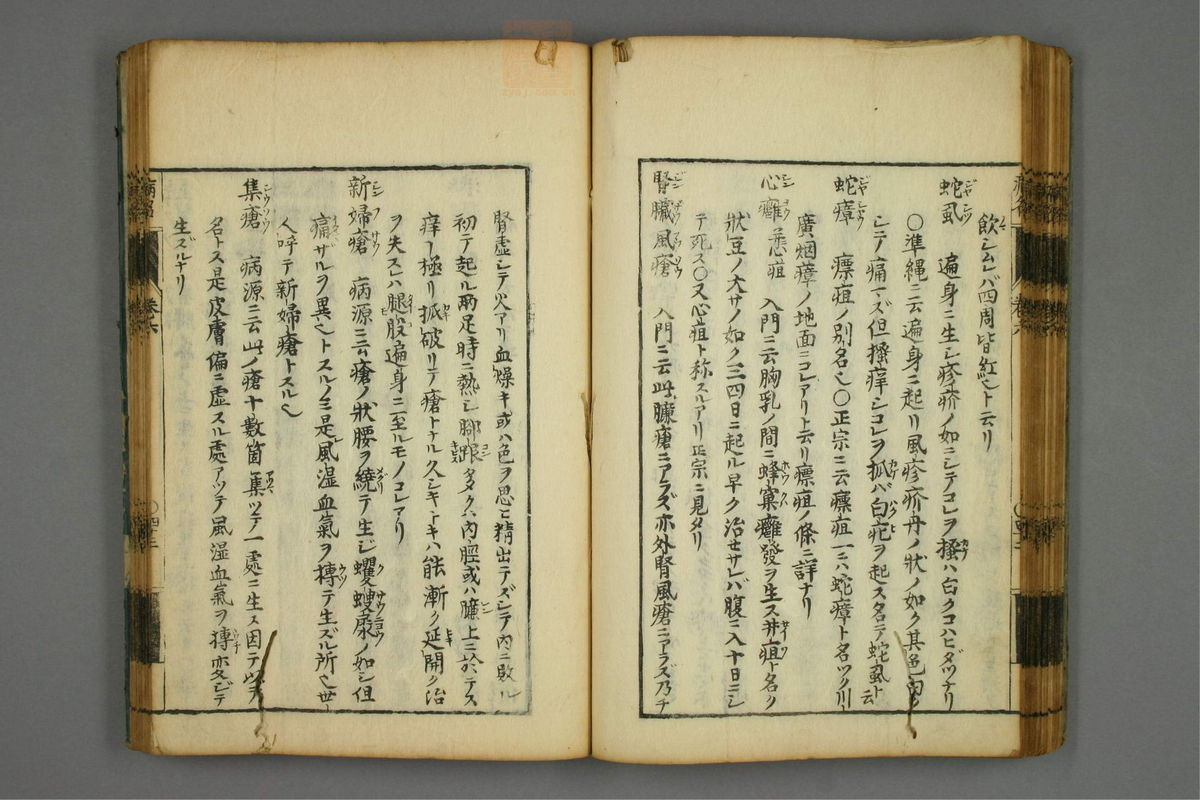 飲シムレバ四周皆紅也ト云リ
蛇虱 遍身ニ生シ疹疥ノ如ニシテコレヲ搔ハ白クコハビダヅナリ
〇準縄ニ云遍身ニ起リ風疹疥丹ノ狀ノ如ク其色白
シテ痛マズ但搔痒シコレヲ抓バ白疕ヲ起ス名テ蛇虱ト云
蛇瘴 瘭疽ノ別名也〇正宗ニ云瘭疽一ニハ蛇瘴ト名ツク川
廣烟瘴ノ地面ニコレアリト云リ瘭疽ノ條ニ詳ナリ
心癰 入門ニ云胸乳ノ間ニ蜂窠癰發ヲ生ス井疽ト名ク
狀豆ノ大サノ如ク三四日ニ起ル早ク治セサレバ腹ニ入十日ニシ
テ死ス〇又心疽ト称スルアリ正宗ニ見タリ
腎臟風瘡 入門ニ云此臁瘡ニアラズ亦外腎風瘡ニアラズ乃チ
腎虛シテ火アリ血燥キ或ハ色ヲ思ヒ精出テズシテ内ニ敗ル
初テ起ル兩足時ニ熱シ脚跟 多クハ内脛或ハ臁上ニ於テス
痒一極リ抓破リテ瘡トナル久シキトキハ能漸ク延開ク治
ヲ失スレハ腿股遍身ニ至ルモノコレアリ
新婦瘡 病源ニ云瘡ノ狀腰ヲ繞テ生ジ蠼螋尿ノ如シ但
痛ザルヲ異也トスルノミ是風湿血氣ヲ摶テ生ズル所也世
人呼テ新婦瘡トスル也
集瘡 病源ニ云此ノ瘡十數箇集ツテ一處ニ生ス因テ以ヲ
名トス是皮膚偏ニ虛スル處アツテ風湿血氣ヲ摶変ジテ
生ズルナリ